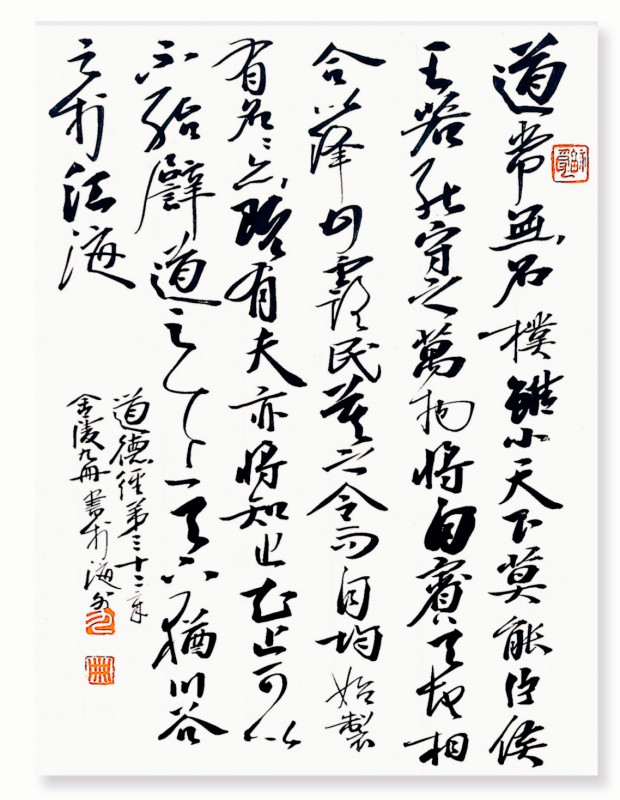 道常無名樸雖小天下莫能臣侯
王若能守之萬物將自賓天地相
合以降甘露民莫之令而自均始製
有名名亦既有夫亦將知止知止可以
不殆譬道之在天下猶川谷
之於江海
道德經第三十二章
金陵九冊書於海外